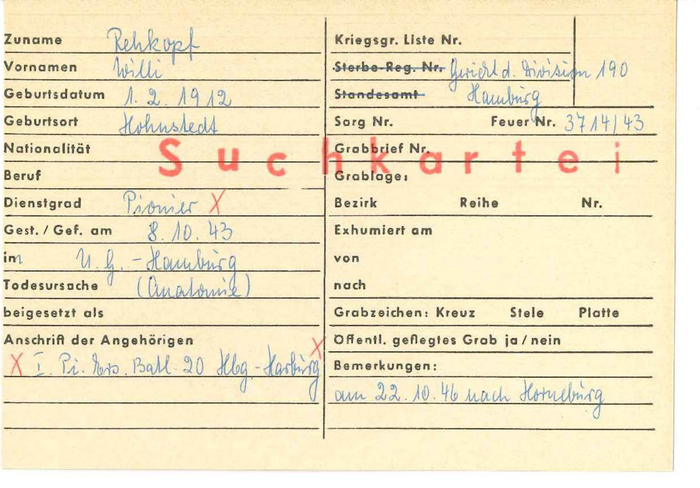 Zuname Rehkopf
Vornamen Willi
Geburtsdatum 1.2.1912
Geburtsort Hohnstedt
Nationalität
Beruf
Dienstgrad Pionier X
Gest./Gef. am 8.10.43
in U.G.-Hamburg
Todesursache (Anatomie)
beigesetzt als
Anschrift der Angehörigen X
X I. Pi. Ers. Batl. 20 Hbg.-Harburg
Suchkartei
Kriegsgr. Liste Nr.
Sterbe-Reg. Nr. Gericht d. Division 190
Standesamt Hamburg
Sarg Nr. Feuer Nr. 3714/43
Grabbrief Nr.
Grablage:
Bezirk Reihe Nr.
Exhumiert am
von
nach
Grabzeichen: Kreuz Stele Platte
Öffentl. geflegtes Grab ja/nein
Bemerkungen:
am 22.10.46 nach Horneburg